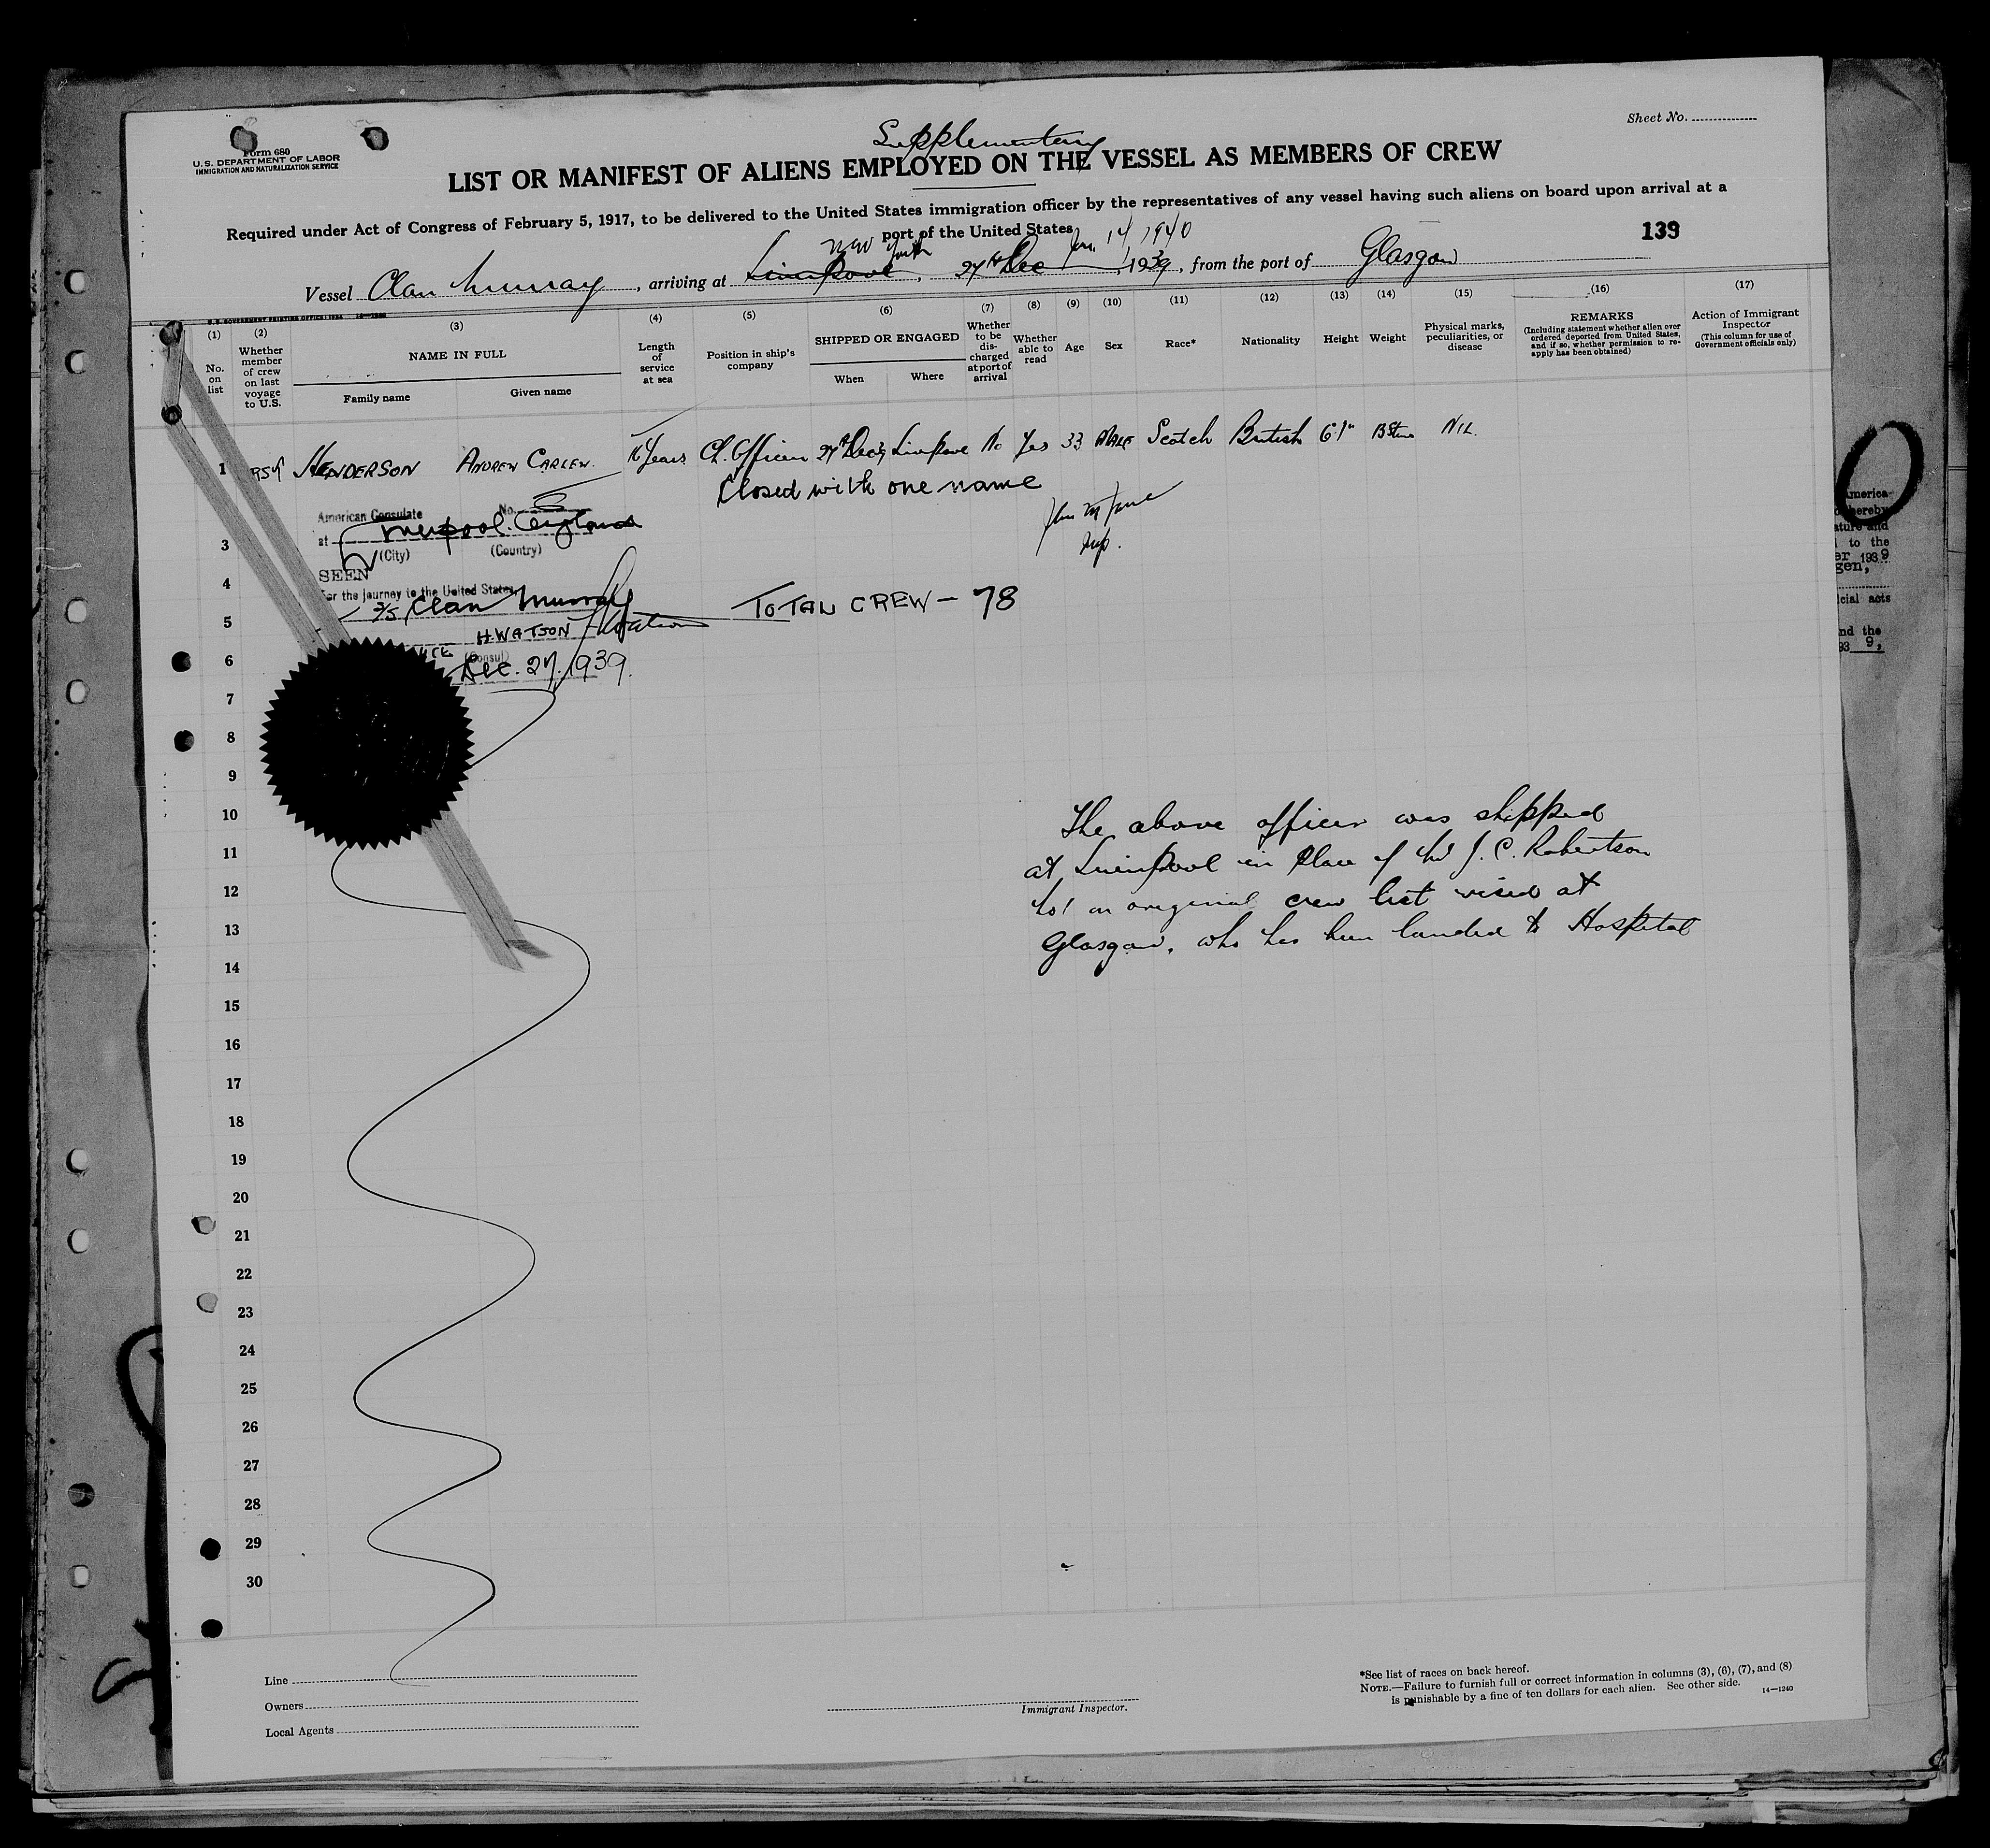 Sheet No.
Form 680
U.S. DEPARTMENT OF LABOR
IMMIGRATION AND NATURALIZATION SERVICE
Supplementary
LIST OR MANIFEST OF ALIENS EMPLOYED ON THE VESSEL AS MEMBERS OF CREW
Required under Act of Congress of February 5, 1917, to be delivered to the United States immigration officer by the representatives of any vessel having such aliens on board upon arrival at a
port of the United States
139
New York Jan. 14, 1940
Vessel Clan Murray, arriving at Liverpool, 27th Dec, 1939, from the port of Glasgow
(1) (2) (3) (4) (5) (6) (7) (8) (9) (10) (11) (12) (13) (14) (15) (16) (17)
No. on list
Whether member of crew on last voyage to U.S.
NAME IN FULL
Family name
Given name
Length of service at sea
Position in ship's company
SHIPPED OR ENGAGED
When
Where
Whether to be discharged at port of arrival
Whether able to read
Age
Sex
Race*
Nationality
Height
Weight
Physical marks, peculiarities, or disease
REMARKS
(Including statement whether alien ever ordered deported from United States, and if so, whether permission to re-apply has been obtained)
Action of Immigrant Inspector
(This column for use of Government officials only)
1 HENDERSON ANDREW CARLEW. 16 Years Ch. Officer 27th Dec 39 Liverpool No Yes 33 MALE Scotch British 6'1" 13 Stone NIL.
Closed with one name
American Consulate No.
at Liverpool. England
(City) (Country)
SEEN
For the journey to the United States
S/S Clan Murray
TOTAL CREW - 78
H. WATSON
VICE (Consul)
Dec. 27, 1939.
3
4
5
6
7
8
9
10
11
12
13
14
15
16
17
18
19
20
21
22
23
24
25
26
27
28
29
30
The above officer was shipped
at Liverpool in place of Mr J. C. Robertson
No 1 on original crew list visied at
Glasgow, who has been landed to Hospital
America-
hereby
ature and
to the
er 1939
gen,
icial acts
nd the
93 9,
Line
Owners
Local Agents
Immigrant Inspector.
*See list of races on back hereof.
NOTE.—Failure to furnish full or correct information in columns (3), (6), (7), and (8)
is punishable by a fine of ten dollars for each alien. See other side.
14—1240